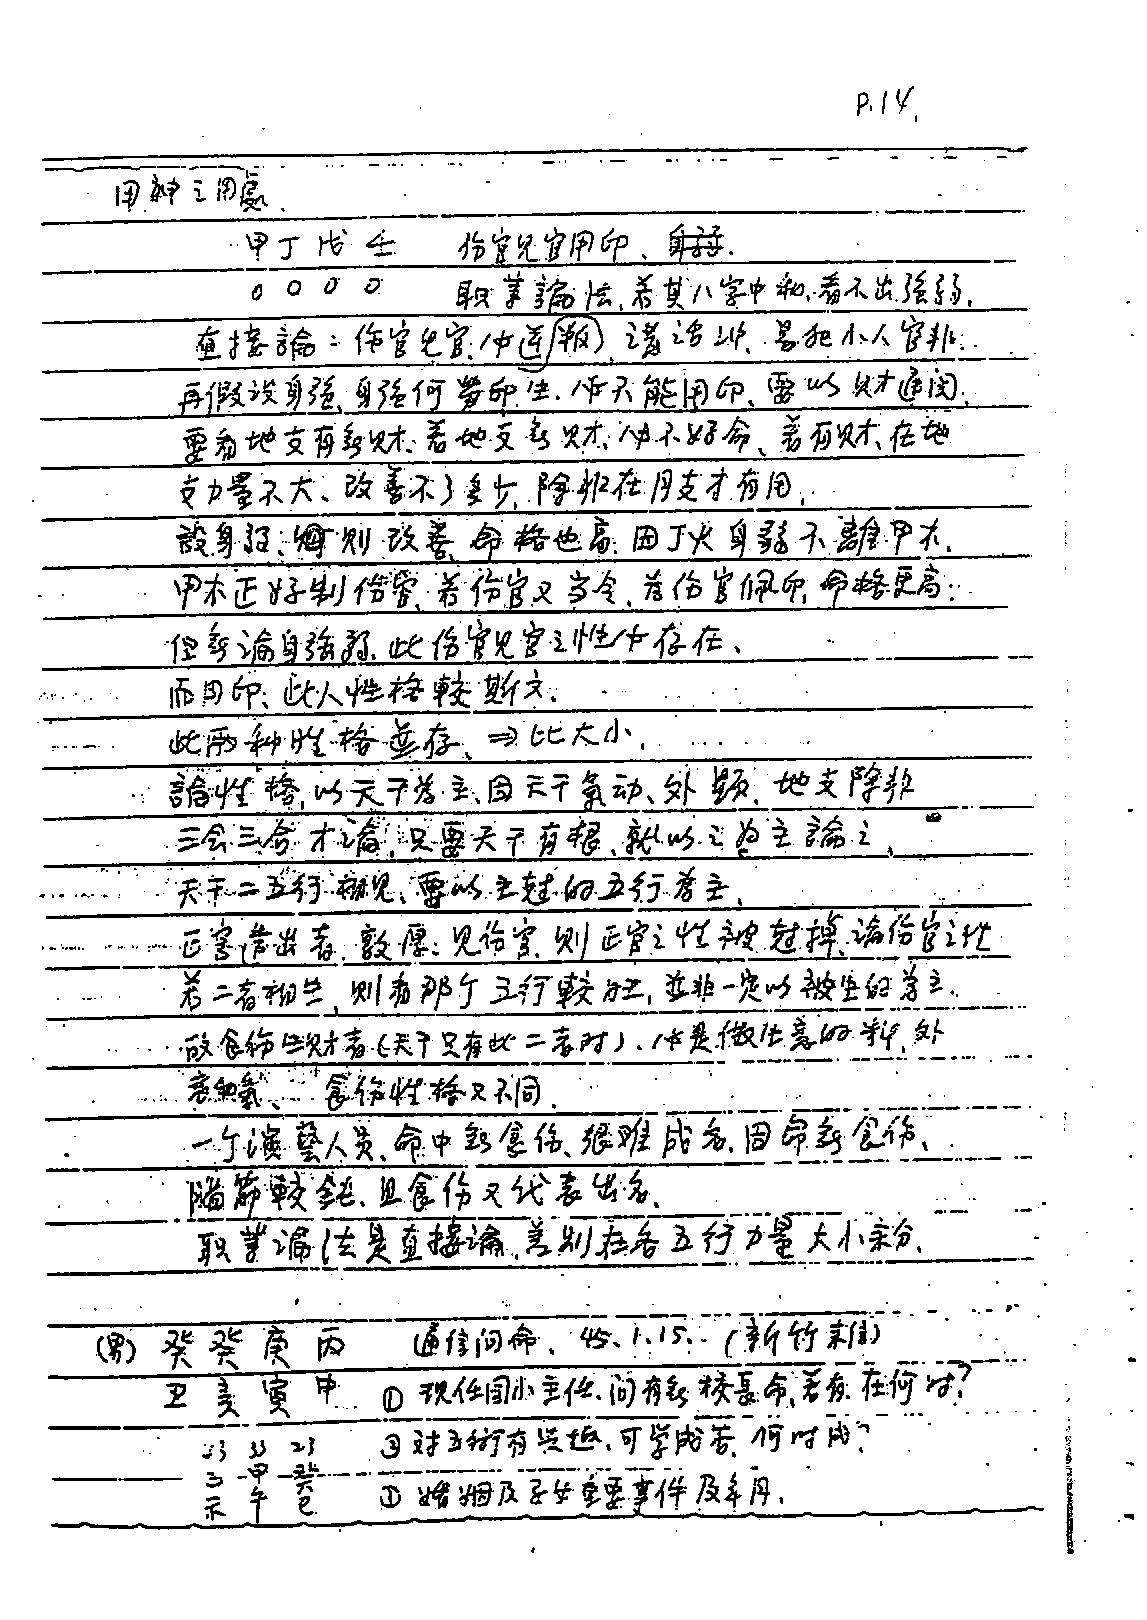 P.14.
用神之用處.
甲丁戊壬 伤官见官用印、
0 0 0 0 职業論法,若其八字中和,看不出強弱.
直接論:伤官见官, 叛 講話冲、易犯小人官非.
再假設身強、身強何勞印生. 不能用印、要以财才通関.
要看地支有無财.若地支無财, 不好命、若有财、在地
支力量不大、改善不了多少,除非在月支才有用.
設身弱、 则改善,命格也高.因丁火身弱不離甲木.
甲木正好制伤官、若伤官又当令、為伤官佩印,命格更高.
但無論身強弱.此伤官见官之性 存在、
而用印、此人性格較斯文.
此兩种性格並存、⇒比大小.
論性格,以天干為主、因天干氣动、外顯、地支除非
三会三合才論,只要天干有根、就以之為主論之.
天干二五行相见、要以主尅的五行為主、
正官透出者、敦厚:见伤官、则正官之性被尅掉、論伤官之性
若二者相生,则看那个五行較旺,並非一定以被生的為主.
故食伤生财者(天干只有此二者时)、 是做生意的料,外
表和氣、 食伤性格又不同.
一个演藝人员、命中無食伤、很难成名.因命無食伤、
腦筋較鈍.且食伤又代表出名.
职業論法是直接論、差别在各五行力量大小来分.
(男) 癸癸庚丙 通信问命、45.1.15. (新竹来信)
丑亥寅申 ① 现任国小主任、问有無校長命,若有.在何时?
33 23 对五術有兴趣、可学成否、何时成?
甲癸 婚姻及子女重要事件及年月.
午巳